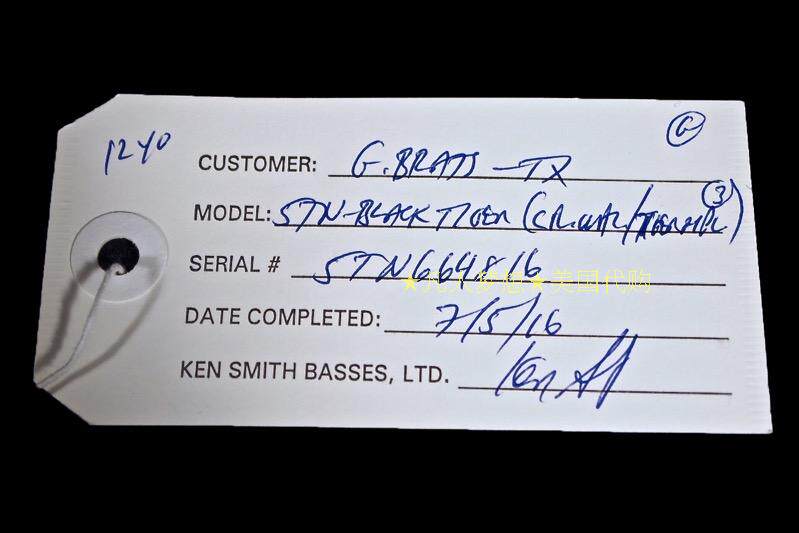 1240
G
CUSTOMER: G. BRATS - TX
3
MODEL: STN-BLACK TIGER (CR.WAL/
SERIAL # STN664816
★美国代购
DATE COMPLETED: 7/5/16
KEN SMITH BASSES, LTD. Ken